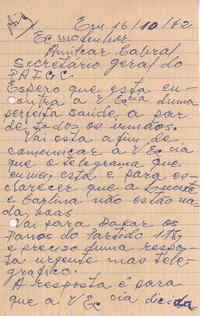 Em 16/10/72
Ecmo Senhor
Amilcar Cabral
Secretário geral do
P.A.I.G.C.
Espero que esta en-
contra a V Ecia duma
perfeita saude, a par
de todos os vindos.
Vai esta a fim de
comunicar a V Ecia
que o telegrama que
enviou, esta e para es-
clarecer que a
e Carlina não estão na-
da boas
Vai para Dakar os
panos do Partido
e preciso duma respos-
ta urgente mas tele-
grafico.
A resposta é para
que a V Ecia decida